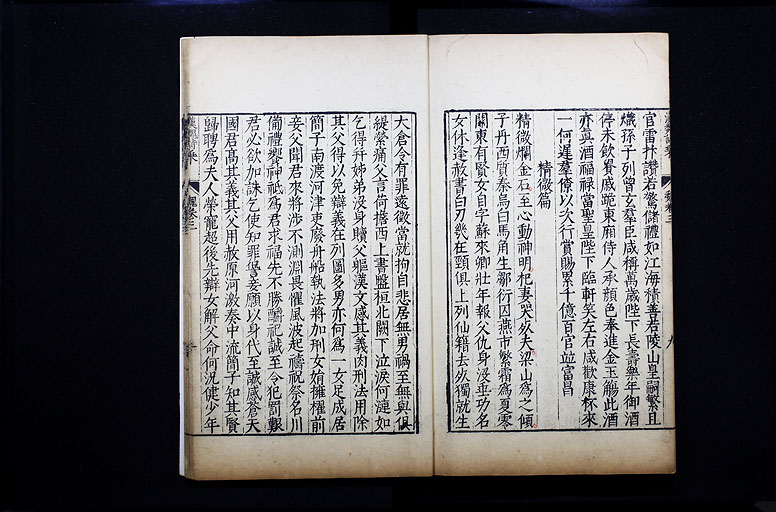 官雷抃讚若驚儲禮如江海積善若陵山皇嗣繁且
熾孫子列曾玄羣臣咸稱萬歲陛下長壽樂年御酒
停未飲貴戚跪東廂侍人承顏色奉進金玉觴此酒
亦真酒福祿當聖皇陛下臨軒笑左右咸歡康杯來
一何遲羣僚以次行賞賜累千億百官竝富昌
精微篇
精微爛金石至心動神明杞妻哭死夫梁山爲之傾
子丹西質秦烏白馬角生鄒衍囚燕市繁霜爲夏零
關東有賢女自字蘇來卿壯年報父仇身沒垂功名
女休逢赦書白刃幾在頸俱上列仙籍去死獨就生
大倉令有罪遠徵當就拘自悲居無男禍至無與俱
緹縈痛父言荷擔西上書盤桓北闕下泣淚何漣如
乞得并姊弟沒身贖父軀漢文感其義肉刑法用除
其父得以免辯義在列圖多男亦何爲一女足成居
簡子南渡河津吏廢舟船執法將加刑女娟擁櫂前
妾父聞君來將涉不測淵畏懼風波起禱祝祭名川
備禮饗神祇爲君求福先不勝釂祀誠至令犯罰艱
君必欲加誅乞使知罪諐妾願以身代至誠感蒼天
國君高其義其父用赦原河激奏中流簡子知其賢
歸聘爲夫人榮寵超後先辯女解父命何況健少年